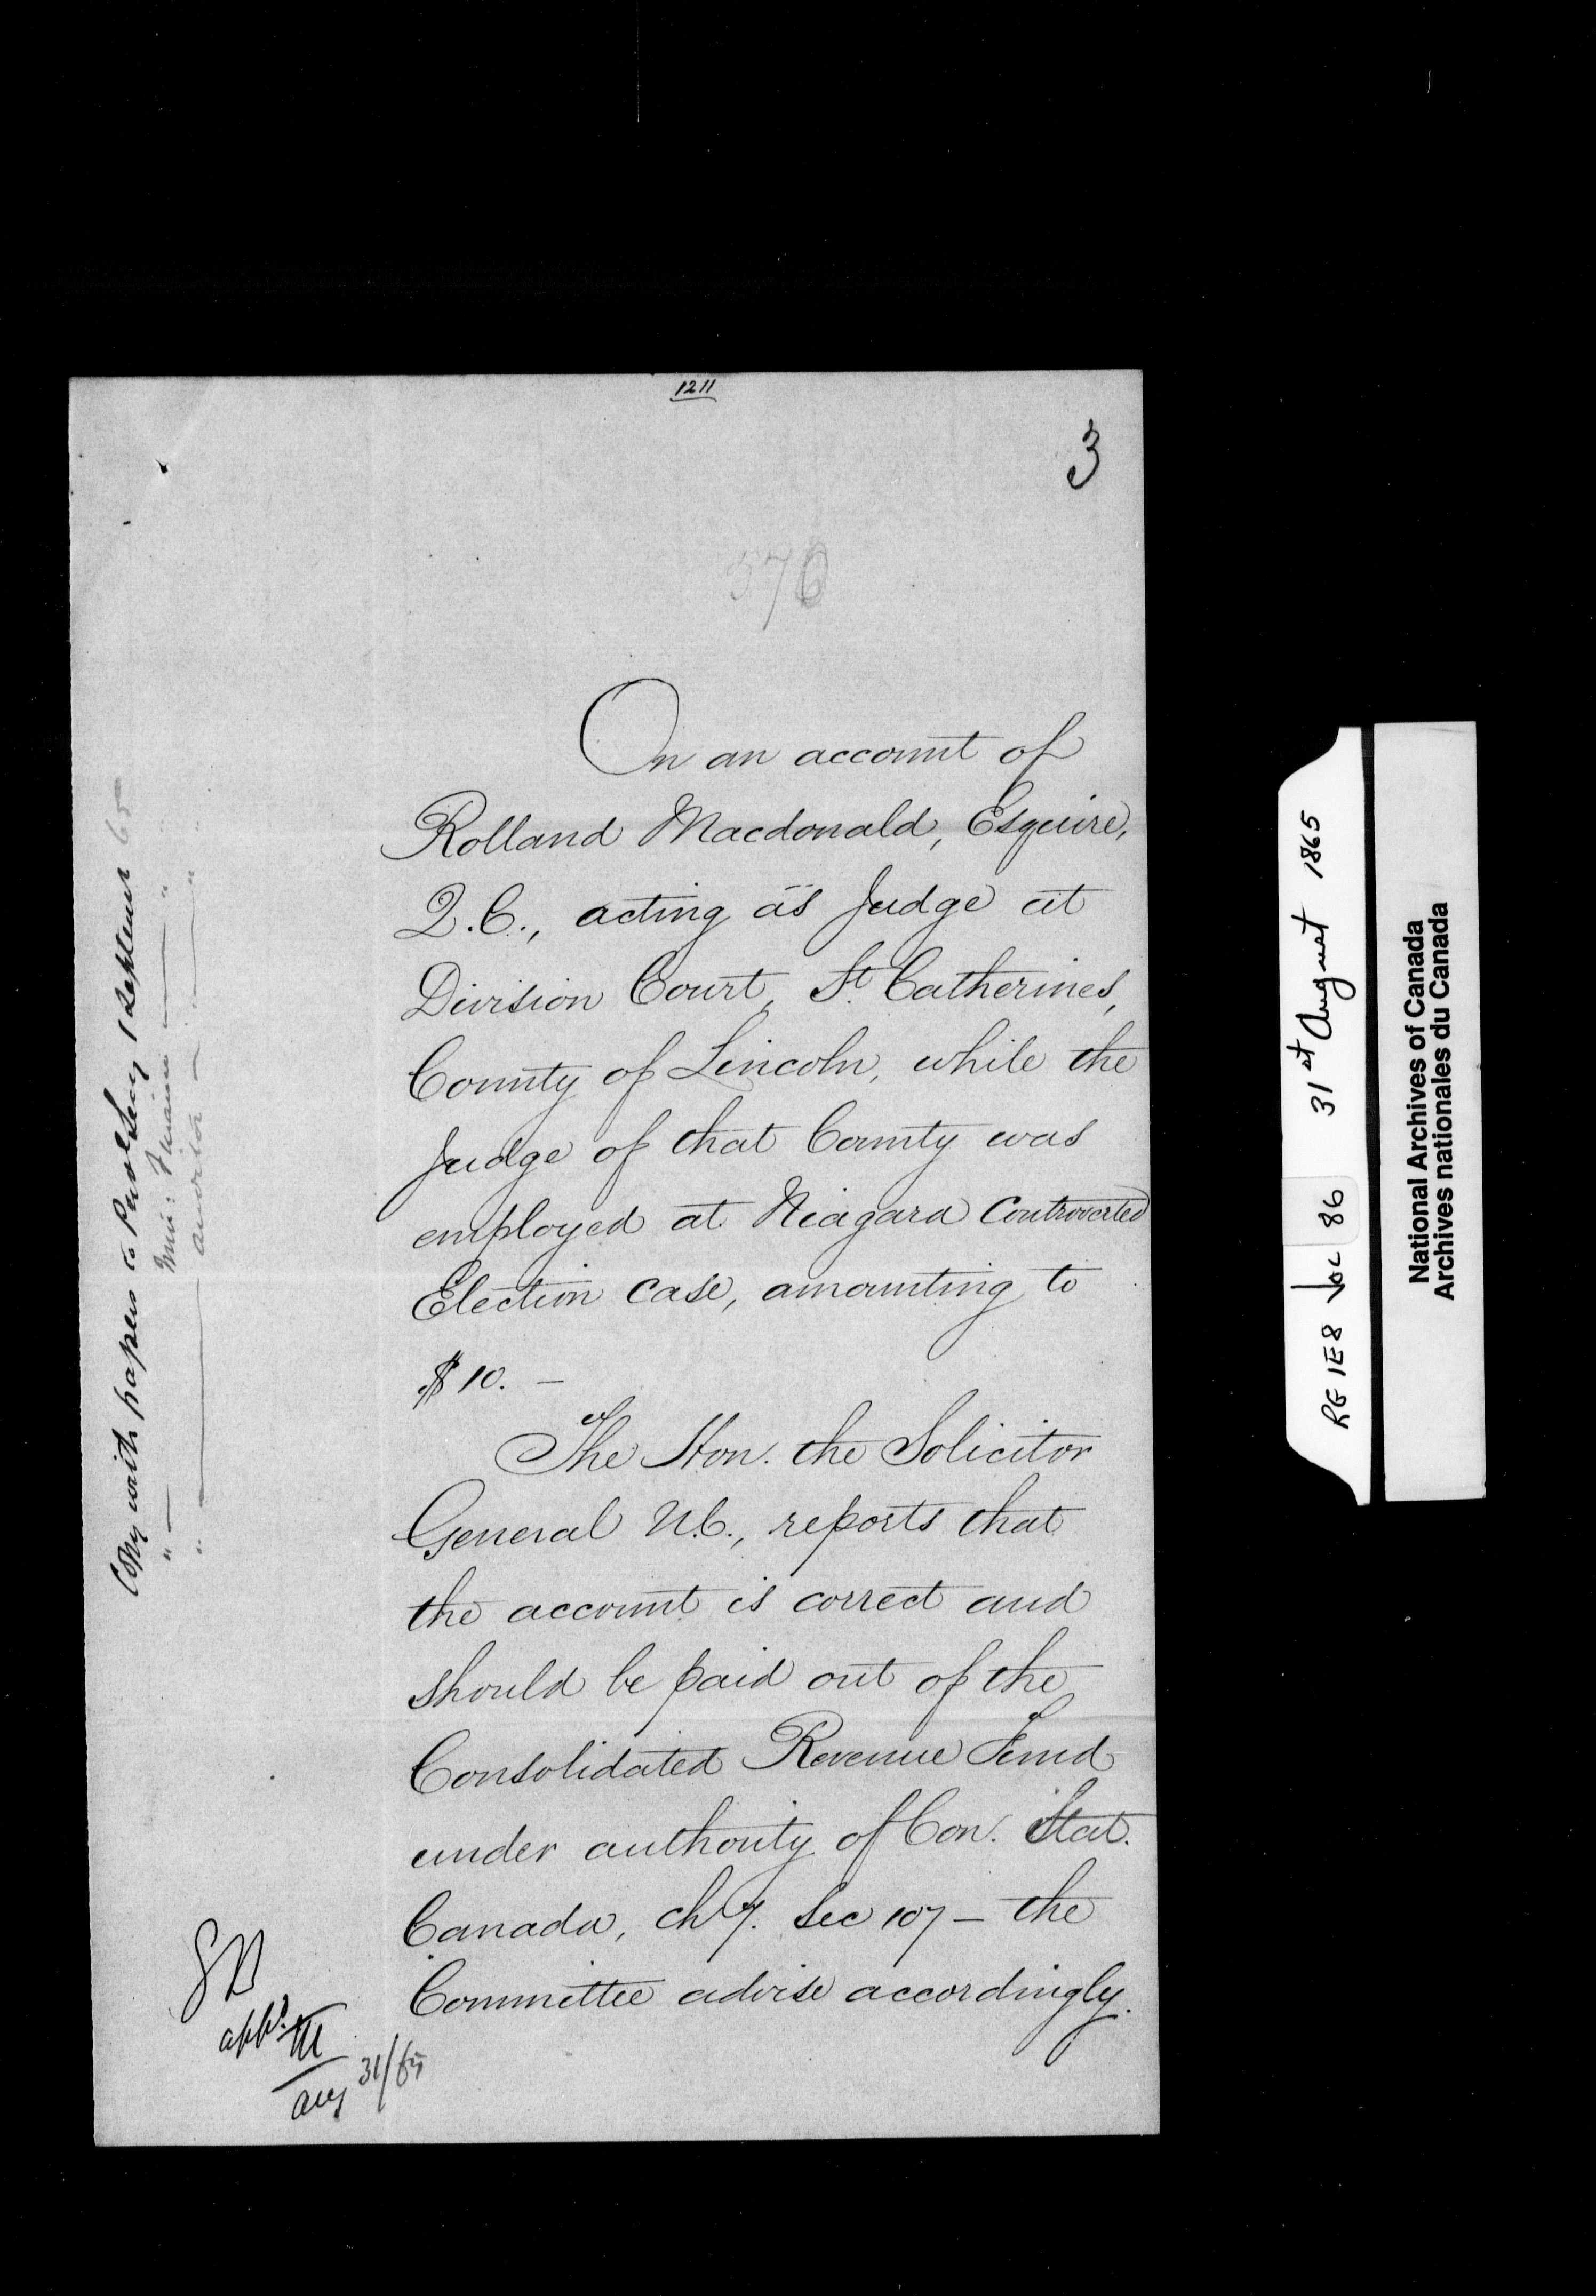 1211
3
576
On an account of
Rolland Macdonald, Esquire,
Q.C., acting as Judge at
Division Court, St. Catherines,
County of Lincoln, while the
Judge of that County was
employed at Niagara Controverted
Election case, amounting to
$10. —
The Hon. the Solicitor
General U.C., reports that
the account is correct and
should be paid out of the
Consolidated Revenue Fund
under authority of Con. Stat.
Canada, ch 7. Sec 107 — the
Committee advise accordingly.
Copy with papers to Provl Secy 1 September 65
" — Min: Finance — " "
" — Auditor — " — "
appd.
Aug 31/65
RG 1E8 Vol 86 31st August 1865
National Archives of Canada
Archives nationales du Canada